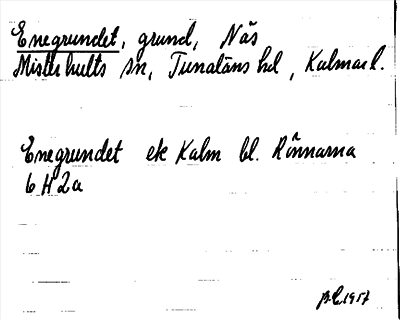 Enegrundet, grund, Näs
Misterhults sn, Tunaläns hd, Kalmar l.
Enegrundet ek Kalm bl. Rönnarna
6H2a
1957